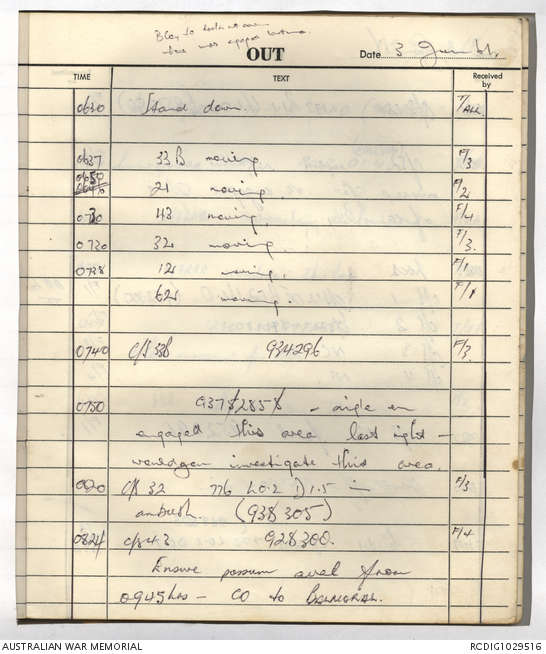 B Coy to
OUT
Date 3 June 68
TIME
TEXT
Received by
0630 Stand down. F/ALL
0637 33B moving. F/3
0650 21 moving. F/2
0730 43 moving. F/4
0730 32 moving. F/3.
0738 12 moving. F/1
62 moving. F/1
0740 C/S 33B 934296 F/3.
0750 9378/2858 - single en
engaged this area last night -
investigate this area.
C/S 32 776 L0.2 D1.5 in F/3
ambush. (938 305)
0824 C/S 43 928300. F/4
Ensure possum avail from
0945 hrs - CO to BALMORAL.
AUSTRALIAN WAR MEMORIAL
RCDIG1029516